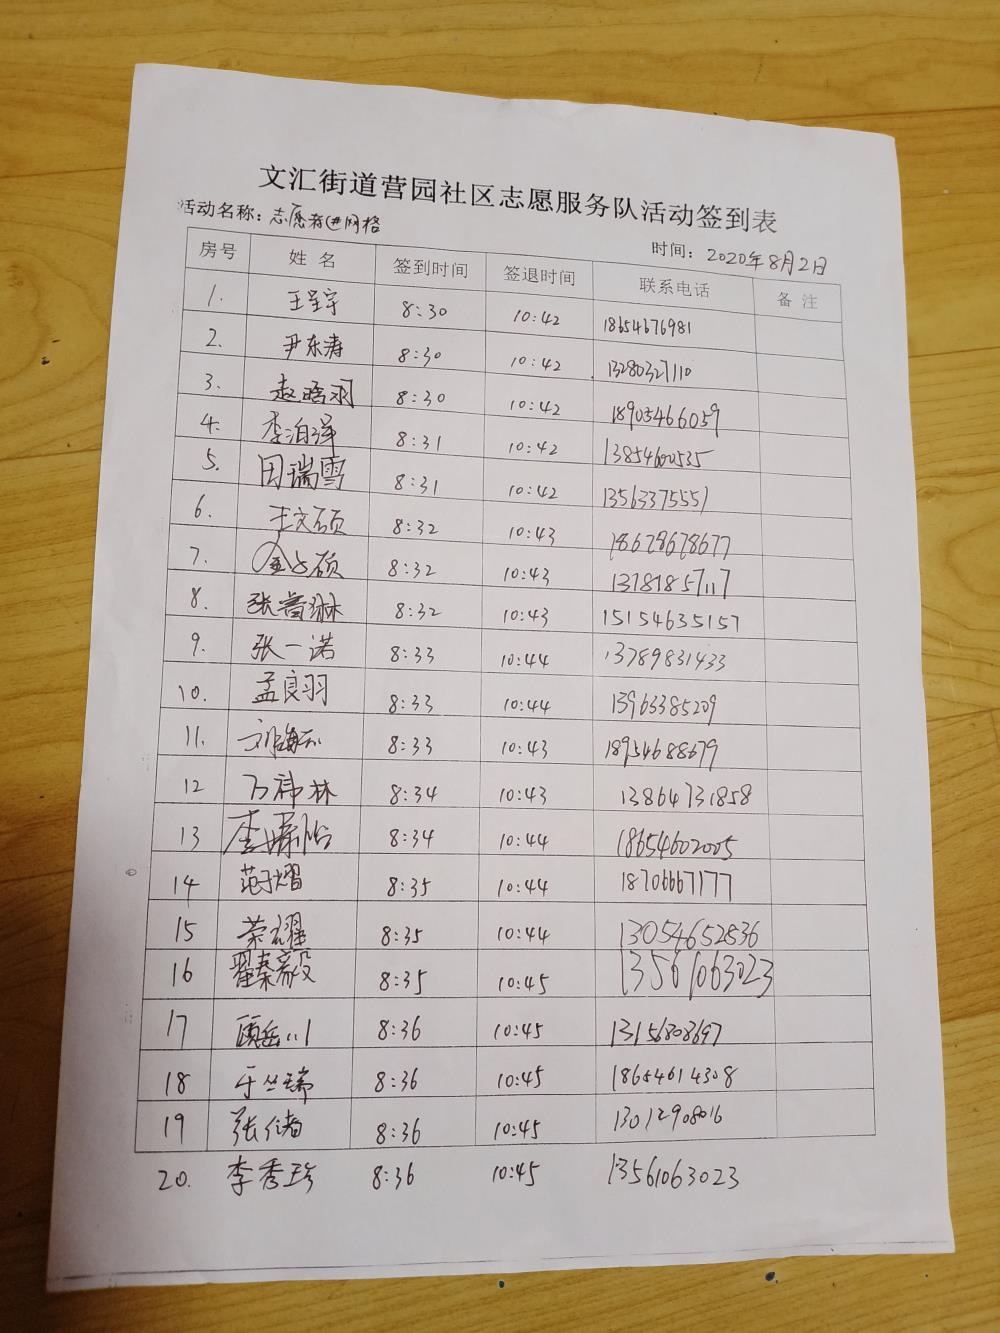 文汇街道营园社区志愿服务队活动签到表
活动名称：志愿者进网格
时间：2020年8月2日
房号 姓 名 签到时间 签退时间 联系电话 备 注
1. 8:30 10:42 18654676981
2. 尹东涛 8:30 10:42 13280327110
3. 赵晗羽 8:30 10:42 18905466059
4. 李泊泽 8:31 10:42 13854600535
5. 田瑞雪 8:31 10:42 13563375551
6. 王文硕 8:32 10:43 18678678677
7. 8:32 10:43 13781857117
8. 8:32 10:43 15154635157
9. 张一诺 8:33 10:44 13789831433
10. 孟良羽 8:33 10:44 13963385209
11. 8:33 10:43 18954688679
12 8:34 10:43 13864731858
13 8:34 10:44 18654602005
14 8:35 10:44 18706667177
15 荣耀 8:35 10:44 13054652836
16 翟秦毅 8:35 10:45 13561063023
17 顾岳川 8:36 10:45 13156808697
18 于丛瑞 8:36 10:45 18654614308
19 8:36 10:45 13012908016
20. 李秀珍 8:36 10:45 13561063023